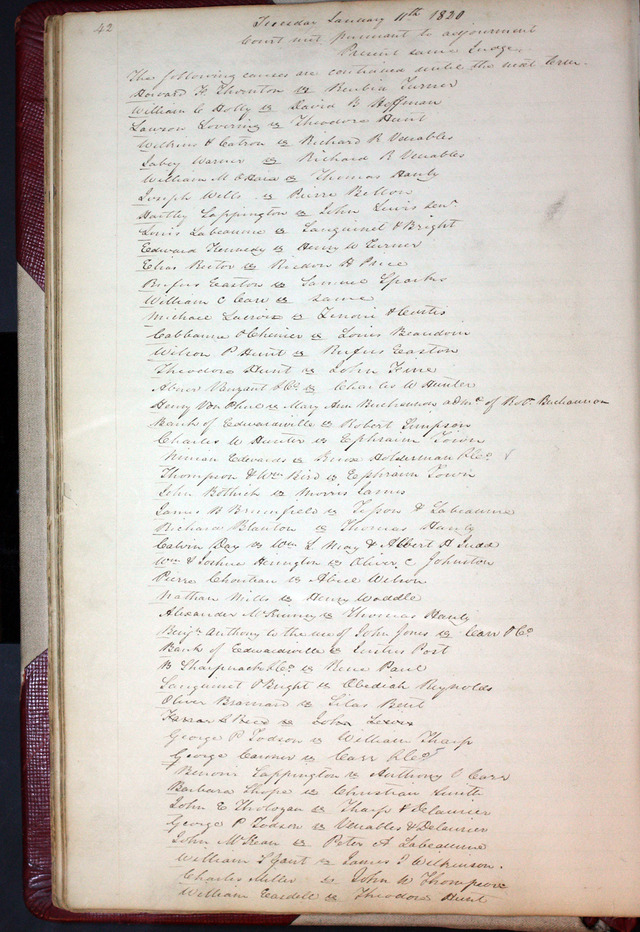 42
Tuesday January 11th 1820
Court met pursuant to adjournment
Present same Judge.
The following causes are continued until the next term.
Howard F. Thornton vs Turner
William C Holly vs David B Hoffman
Lawson Lovering vs Theodore Hunt
Wilkins & Catron vs Richard R Venables
Jabez Warner vs Richard R Venables
William M OHara vs Thomas Hanly
Joseph Wells vs Pierre
Hartley Sappington vs John Lewis Senr
Louis Labeaume vs Sanguinet & Bright
Edward Kennedy vs Henry W Turner
Elias Rector vs Risdon H Price
Rufus Easton vs Sparks
William C Carr vs same
Michael Lacroix vs & Curtis
Cabbanne & Chenier vs Louis Beaudoin
Wilson P Hunt vs Rufus Easton
Theodore Hunt vs John Fine
Abner Vanzant & Co vs Charles W Hunter
Henry Von Phul vs Mary Ann Buchannon admx of Robt Buchannon
Bank of Edwardsville vs Robert Simpson
Charles W Hunter vs Ephraim Town
Ninian Edwards vs Holderman & Co
Thompson & Wm Bird vs Ephraim Town
John Bothick vs Morris James
James B Brumfield vs Tesson & Labeaume
Richard Blanton vs Thomas Hanly
Calvin Day vs Wm L May & Albert A Judd
Wm & Joshua Herington vs Oliver C Johnston
Pierre Chouteau vs Wilson
Nathan Mills vs Henry Waddle
Alexander McKinney vs Thomas Hanly
Benjn Anthony to the use of John Jones vs Carr & Co
Bank of Edwardsville vs Justus Post
& Co vs Rene Paul
Sanguinet & Bright vs Obediah Reynolds
Oliver Braman vs Silas Bent
Farrar & vs John
George P Todson vs William Tharp
George Casner vs Carr & Co
Sappington vs Anthony V Carr
Barbara Shope vs Christian Smith
John E Tholozan vs Tharp & Delaurier
George P Todson vs Venables & Delaurier
John McKean vs Peter A Labeaume
William S Gant vs James J Wilkinson.
Charles Miller vs John W Thompson
William Easdell vs Theodore Hunt